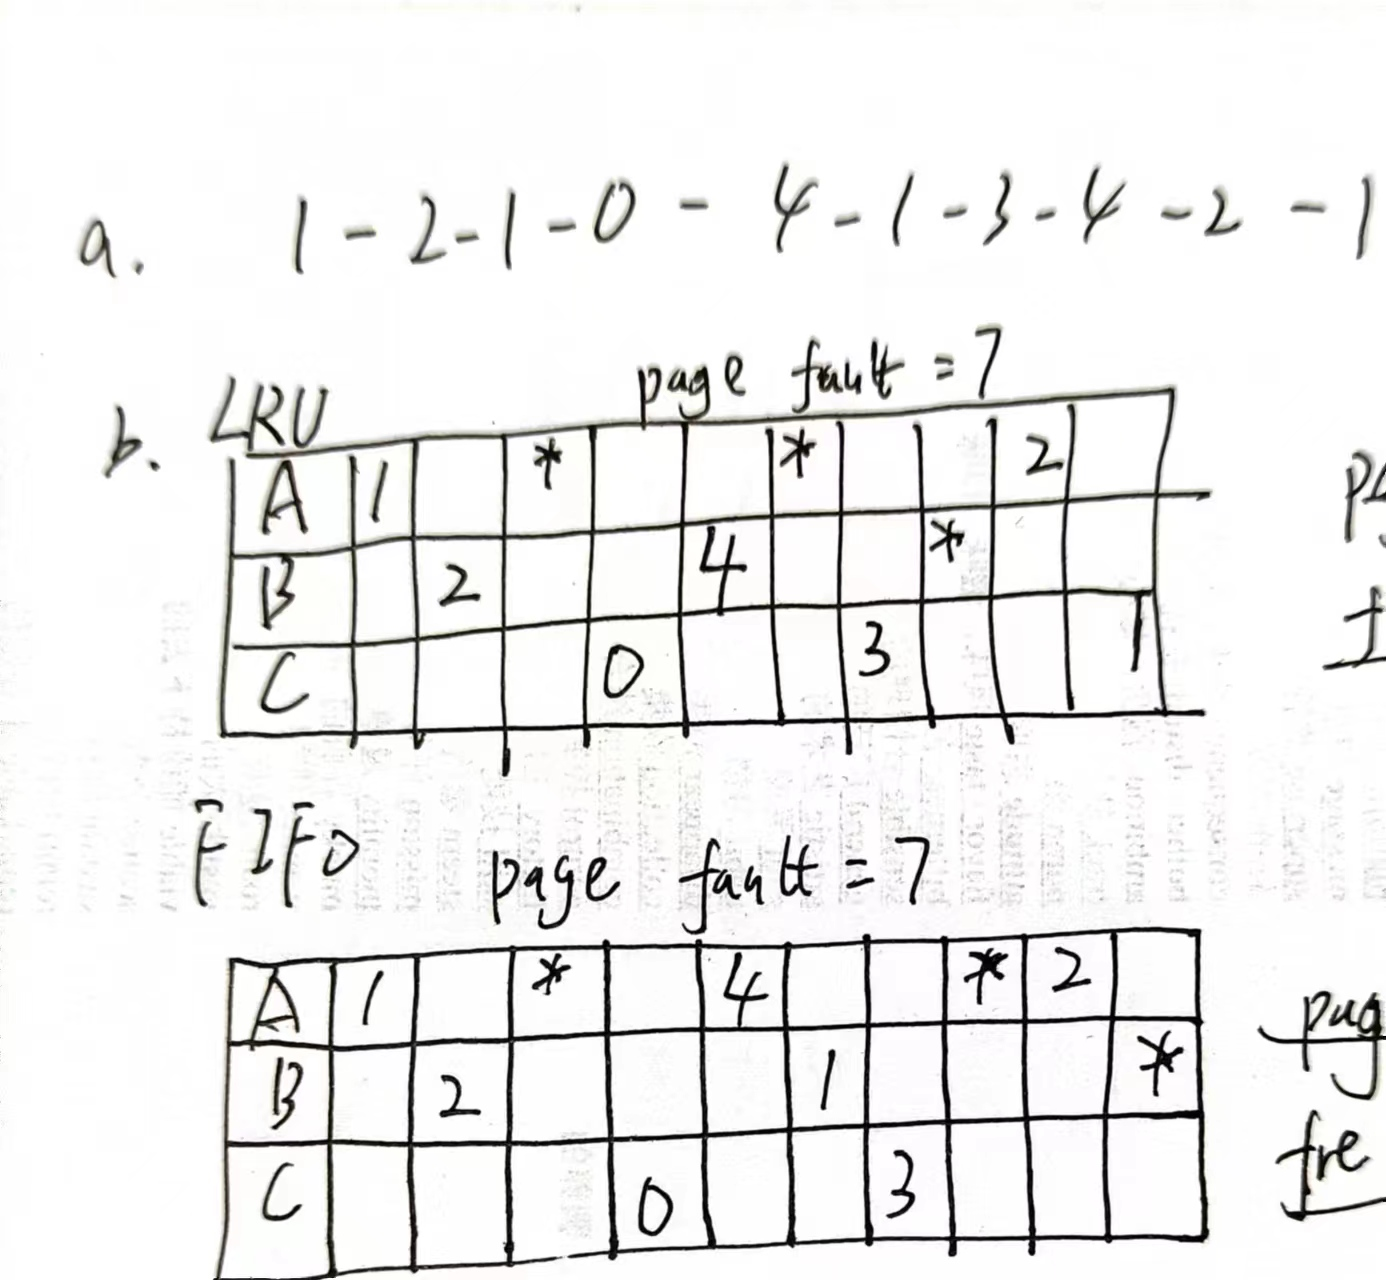 a. 1 - 2 - 1 - 0 - 4 - 1 - 3 - 4 - 2 - 1
page fault = 7
b. LRU
A 1 * * 2
B 2 4 *
C 0 3 1
FIFO page fault = 7
A 1 * 4 * 2
B 2 1 *
C 0 3
pag
fre